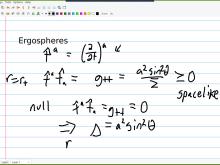 Ergospheres
ξ^a = (∂/∂t)^a
r=r₊ ξ^a ξ_a = g_tt = a² sin²θ / Σ ≥ 0
spacelike
null ξ^a ξ_a = g_tt = 0
⇒ Δ = a² sin²θ
r